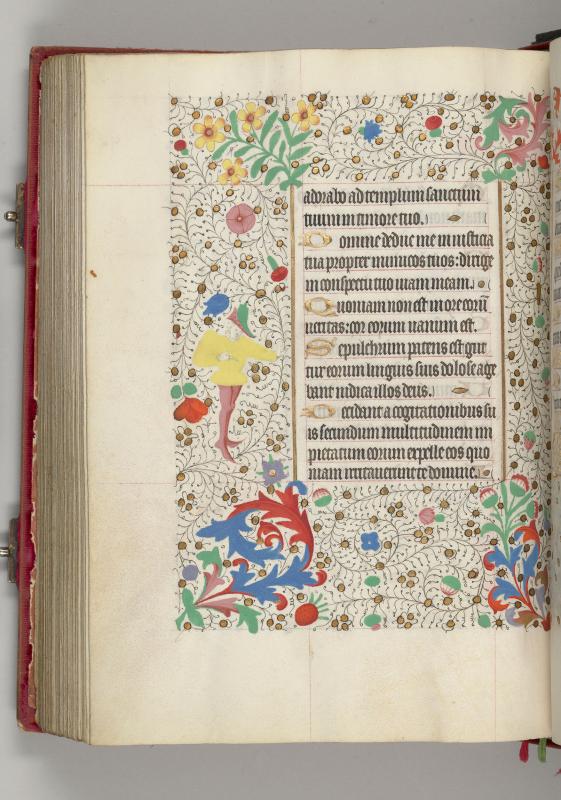 adorabo ad templum sanctum
tuum in timore tuo.
Domine deduc me in iusticia
tua propter inimicos tuos: dirige
in conspectu tuo uiam meam.
Quoniam non est in ore eorū
ueritas: cor eorum uanum est.
Sepulchrum patens est gut
tur eorum linguis suis dolose age
bant iudica illos deus.
Decidant a cogitationibus su
is secundum multitudinem im
pietatum eorum expelle eos quo
niam irritauerunt te domine.